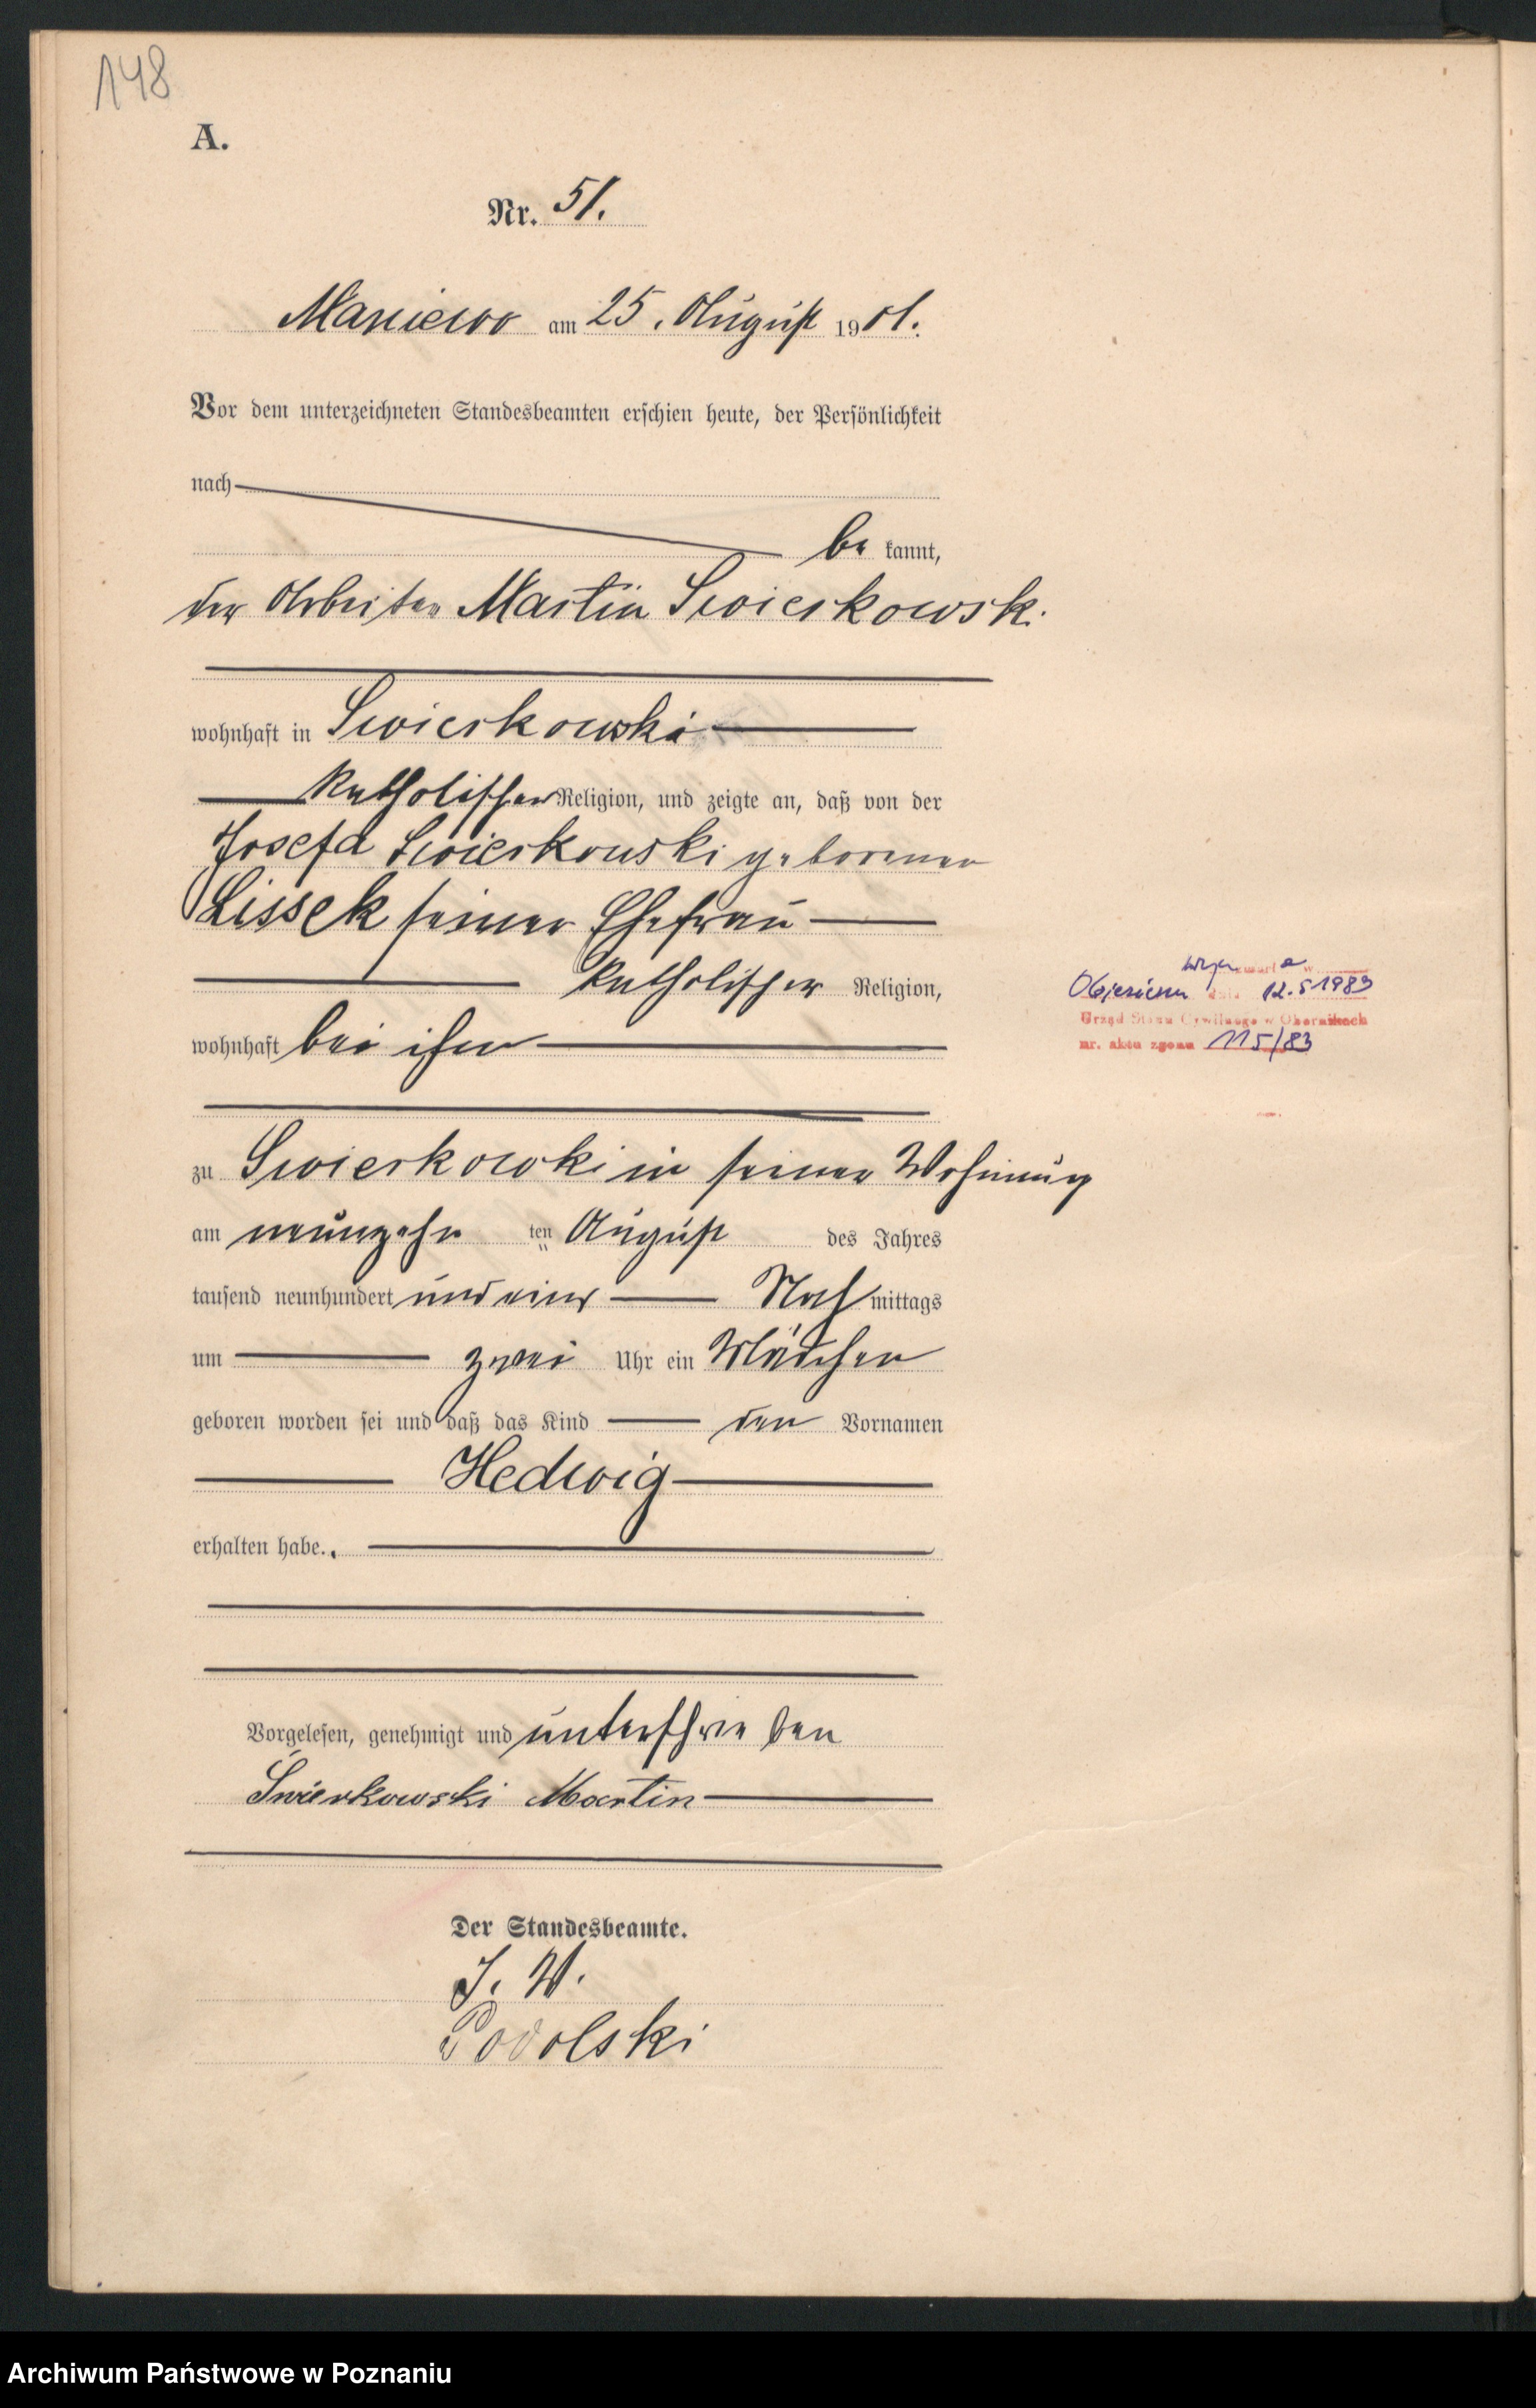 148
A.
Nr. 51.
Maniewo am 25. August 1901.
Vor dem unterzeichneten Standesbeamten erschien heute, der Persönlichkeit
nach
be kannt,
der Arbeiter Martin Swierkowski
wohnhaft in Swierkowki
katholischer Religion, und zeigte an, daß von der
Josefa Swierkowski geborenen
Lissek seiner Ehefrau
katholischer Religion,
wohnhaft bei ihm
zu Swierkowki in seiner Wohnung
am neunzehn ten August des Jahres
tausend neunhundert und eins Nach mittags
um zwei Uhr ein Mädchen
geboren worden sei und daß das Kind den Vornamen
Hedwig
erhalten habe.
Vorgelesen, genehmigt und unterschrieben
Świerkowski Martin
Der Standesbeamte.
J. V.
Podolski
zmarła w
Objezierzu dnia 12.5 1983
Urząd Stanu Cywilnego w Obornikach
nr. aktu zgonu 115/83
Archiwum Państwowe w Poznaniu